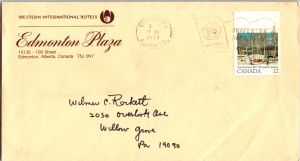 WESTERN INTERNATIONAL HOTELS
Edmonton Plaza
10135 - 100 Street
Edmonton, Alberta, Canada T5J 0N7
CANADA 12
Wilmer C. Rockett
2030 Overlook Ave
Willow Grove
Pa 19090